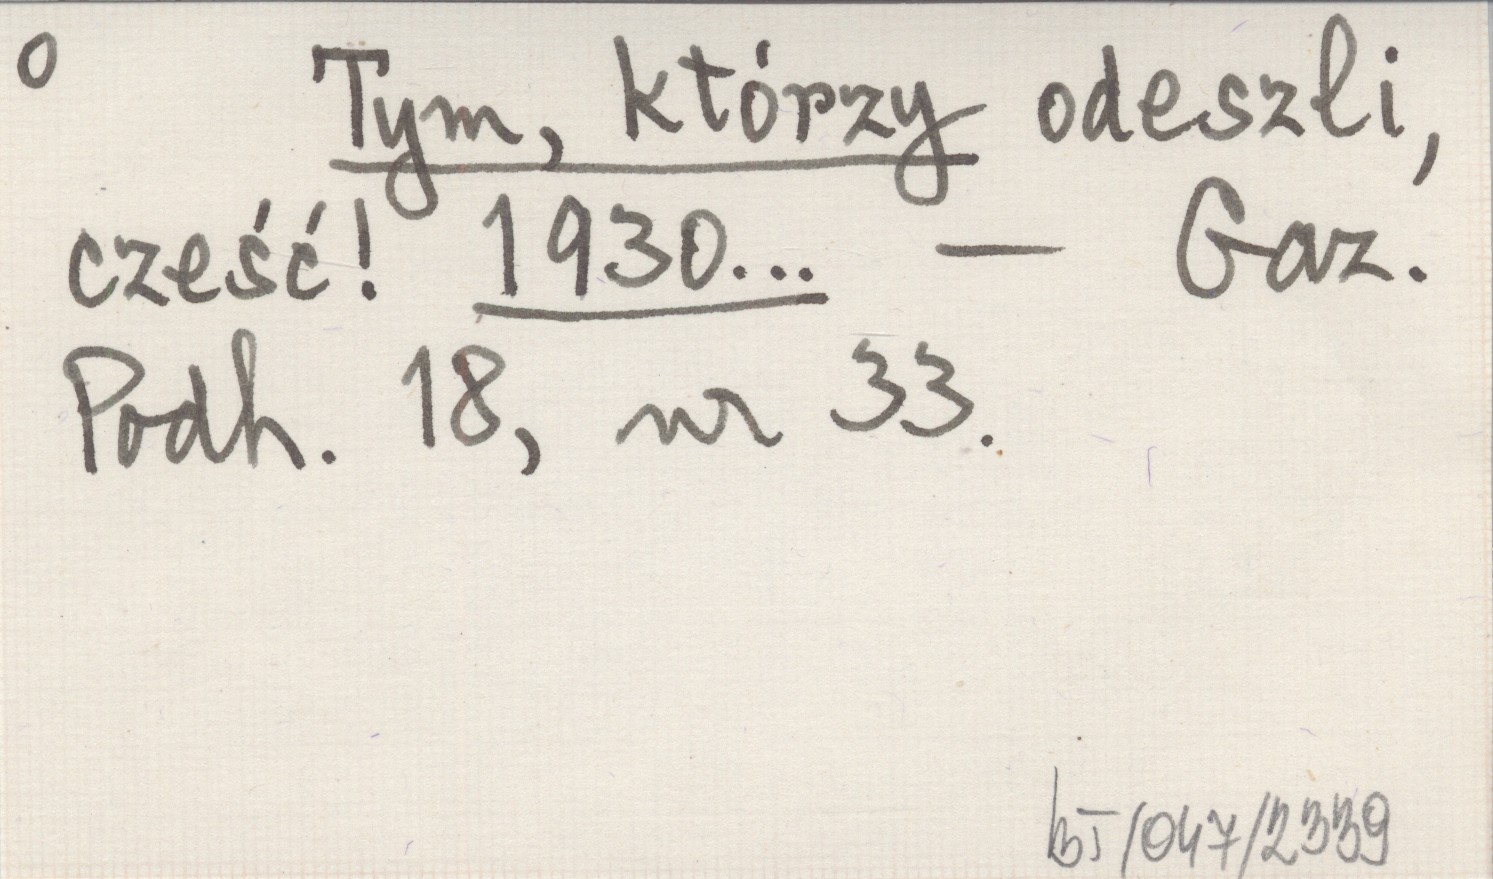 o Tym, którzy odeszli,
cześć! 1930... — Gaz.
Podh. 18, nr 33.
bJ/047/2339